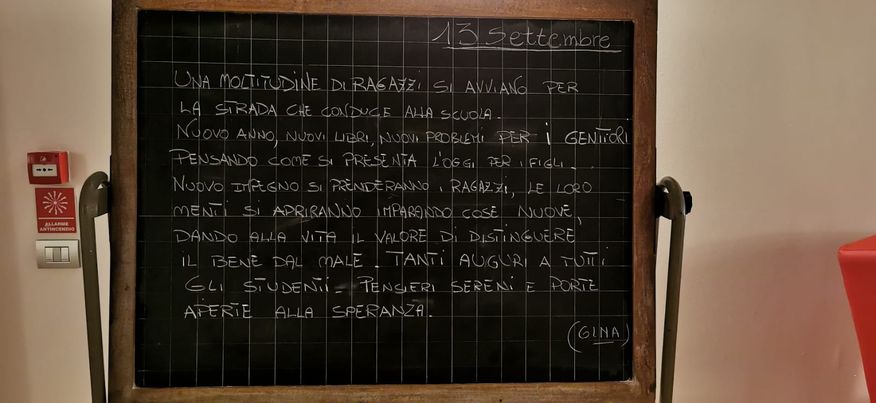 13 Settembre
UNA MOLTITUDINE DI RAGAZZI SI AVVIANO PER
LA STRADA CHE CONDUCE ALLA SCUOLA.
NUOVO ANNO, NUOVI LIBRI, NUOVI PROBLEMI PER I GENTIORI
PENSANDO COME SI PRESENTA L'OGGI PER I FIGLI.
NUOVO IMPEGNO SI PRENDERANNO I RAGAZZI, LE LORO
MENTI SI APRIRANNO IMPARANDO COSE NUOVE,
DANDO ALLA VITA IL VALORE DI DISTINGUERE
IL BENE DAL MALE. TANTI AUGURI A TUTTI
GLI STUDENTI - PENSIERI SERENI E PORTE
APERTE ALLA SPERANZA.
(GINA)
ALLARME
ANTINCENDIO